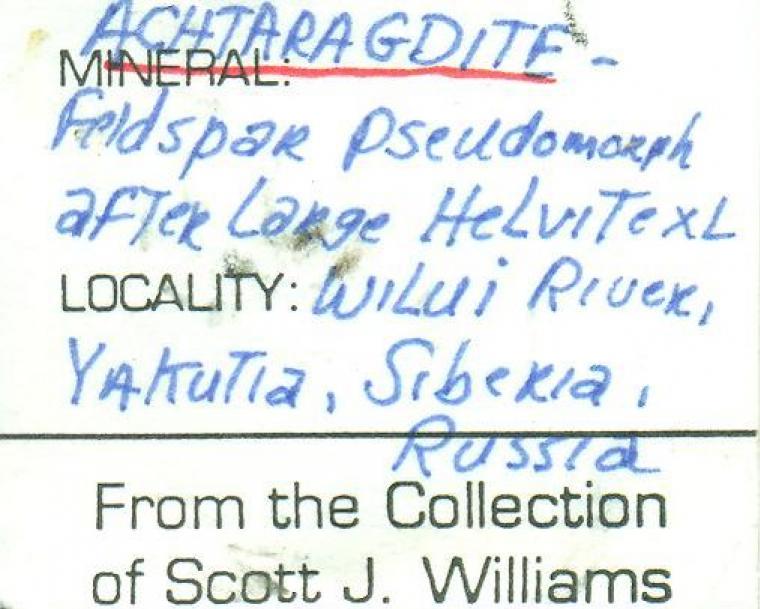 ACHTARAGDITE -
MINERAL:
Feldspar Pseudomorph
after Large HeLviTe xL
LOCALITY: WiLui River,
YAKuTia, Siberia,
Russia
From the Collection
of Scott J. Williams